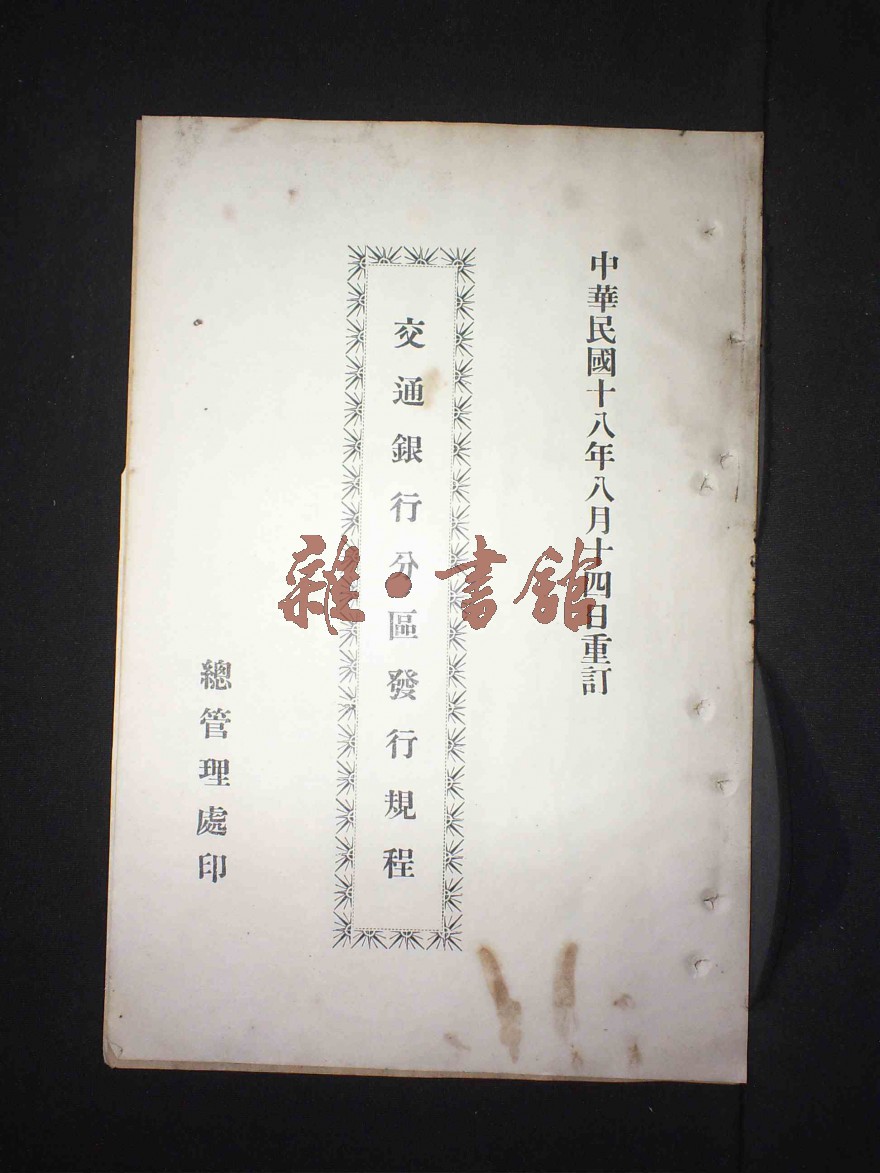 中華民國十八年八月十四日重訂
交通銀行分區發行規程
總管理處印
雜·書館